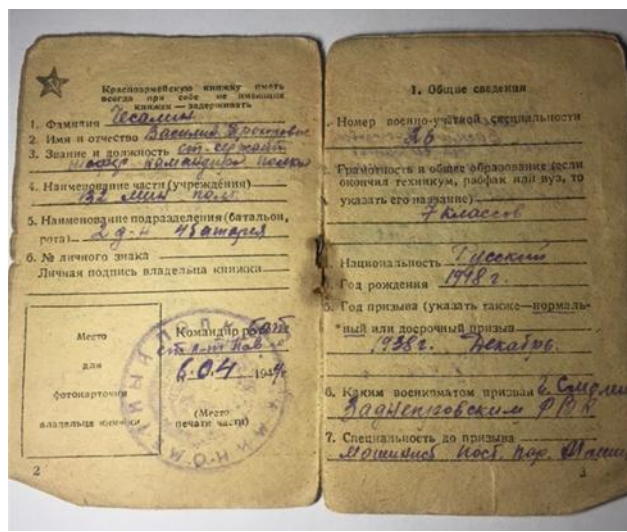 Красноармейскую книжку иметь
всегда при себе не имеющих
книжки — задерживать
1. Фамилия Чесалин
2. Имя и отчество Василий
3. Звание и должность ст. сержант
шофер командира полка
4. Наименование части (учреждения)
132 мин полк
5. Наименование подразделения (батальон,
рота) 2 д-н 4 батарея
6. № личного знака
Личная подпись владельца книжки
Место
для
фотокарточки
владельца книжки
Командир роты
6.04 194
(Место
печати части)
2
I. Общие сведения
Номер военно-учетной специальности
26
Грамотность и общее образование (если
окончил техникум, рабфак или вуз, то
указать его название)
7 классов
Национальность Русский
Год рождения 1918 г.
Год призыва (указать также—нормаль-
ный или досрочный призыв
1938г. Декабрь.
6. Каким военкоматом призван г. Смолен
Заднепровским РВК
7. Специальность до призыва
Машинист пар.
3